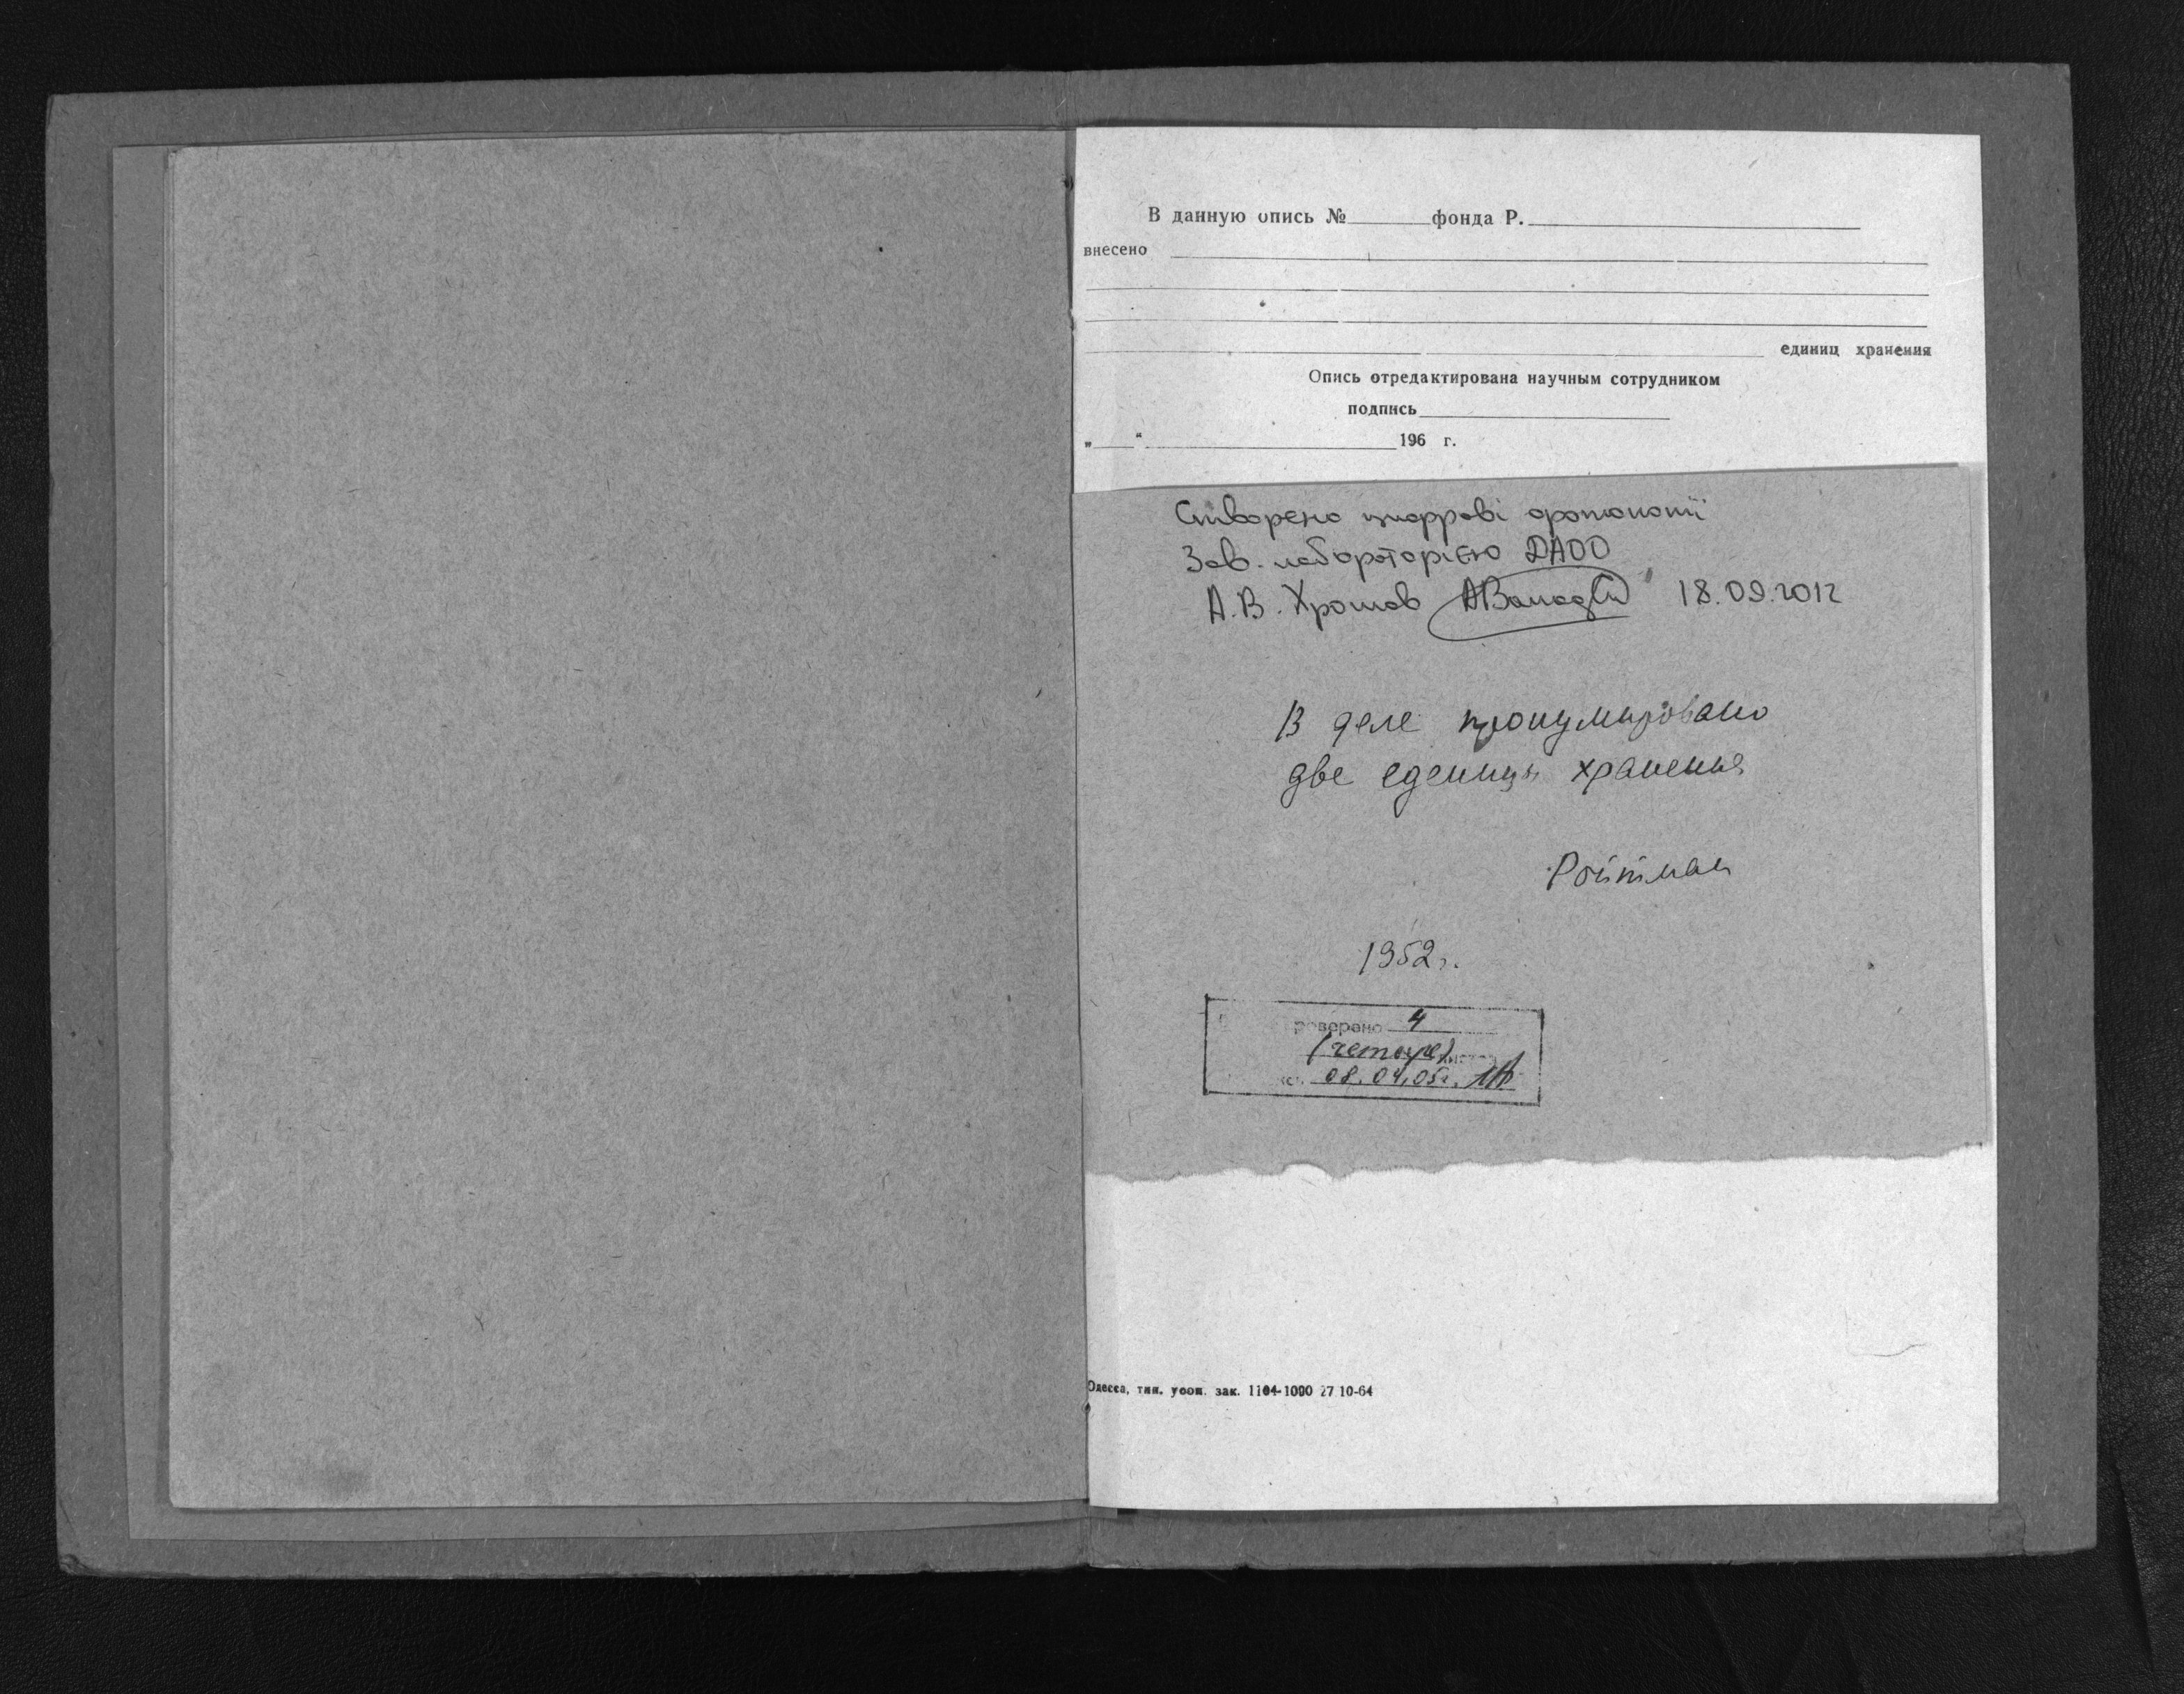 В данную опись № фонда Р.
внесено
единиц хранения
Опись отредактирована научным сотрудником
подпись
„ “ 196 г.
Створено цифрові фотокопії
Зав. лабораторією ДАОО
А.В. Хромов 18.09.2012
В деле пронумировано
две еденицы хранения
Ройтман
1952 г.
роверено 4
(четыре)
08.04.05г.
Одесса, тип. упол. зак. 1104-1000 27 10-64